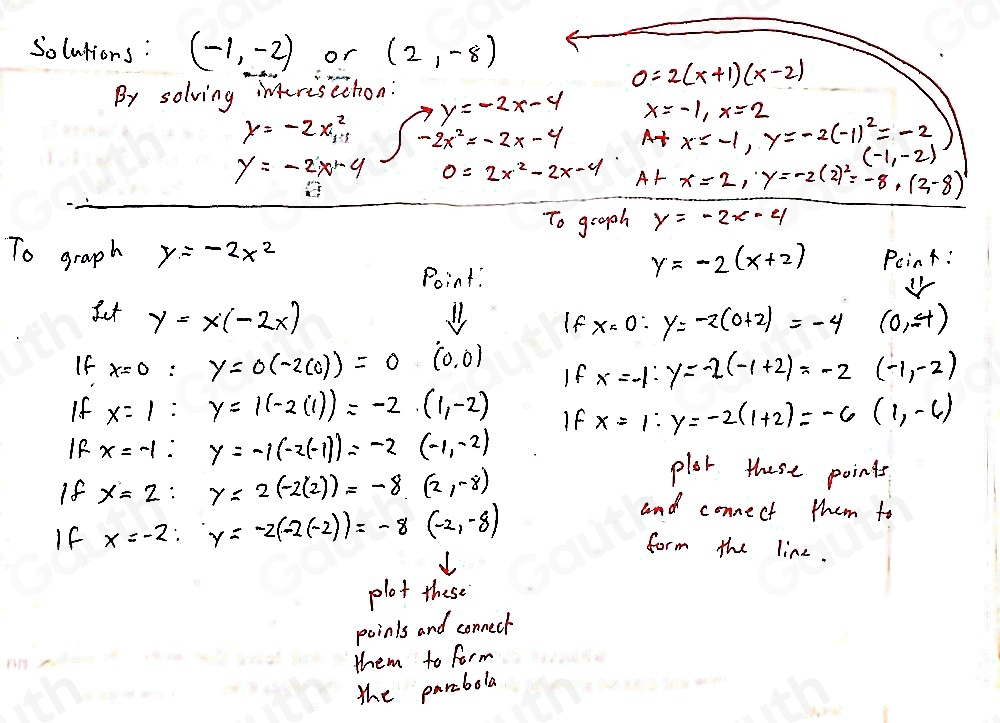 Solutions: (-1, -2) or (2, -8)
By solving interesection:
y = -2x²
y = -2x-4
y = -2x-4
-2x² = -2x-4
0 = 2x²-2x-4
0=2(x+1)(x-2)
x=-1, x=2
At x=-1, y=-2(-1)²=-2
(-1,-2)
At x=2, y=-2(2)²=-8, (2,-8)
To graph y = -2x²
Point:
⇓
Let y = x(-2x)
If x=0 : y=0(-2(0)) = 0 (0,0)
If x=1 : y=1(-2(1)) = -2 (1,-2)
If x=-1 : y=-1(-2(-1)) = -2 (-1,-2)
If x=2 : y=2(-2(2)) = -8 (2,-8)
If x=-2 : y=-2(-2(-2)) = -8 (-2,-8)
↓
plot these
points and connect
them to form
the parabola
To graph y = -2x-4
y = -2(x+2)
Point:
⇓
If x=0: y=-2(0+2) = -4 (0,-4)
If x=-1: y=-2(-1+2) = -2 (-1,-2)
If x=1: y=-2(1+2) = -6 (1,-6)
plot these points
and connect them to
form the line.